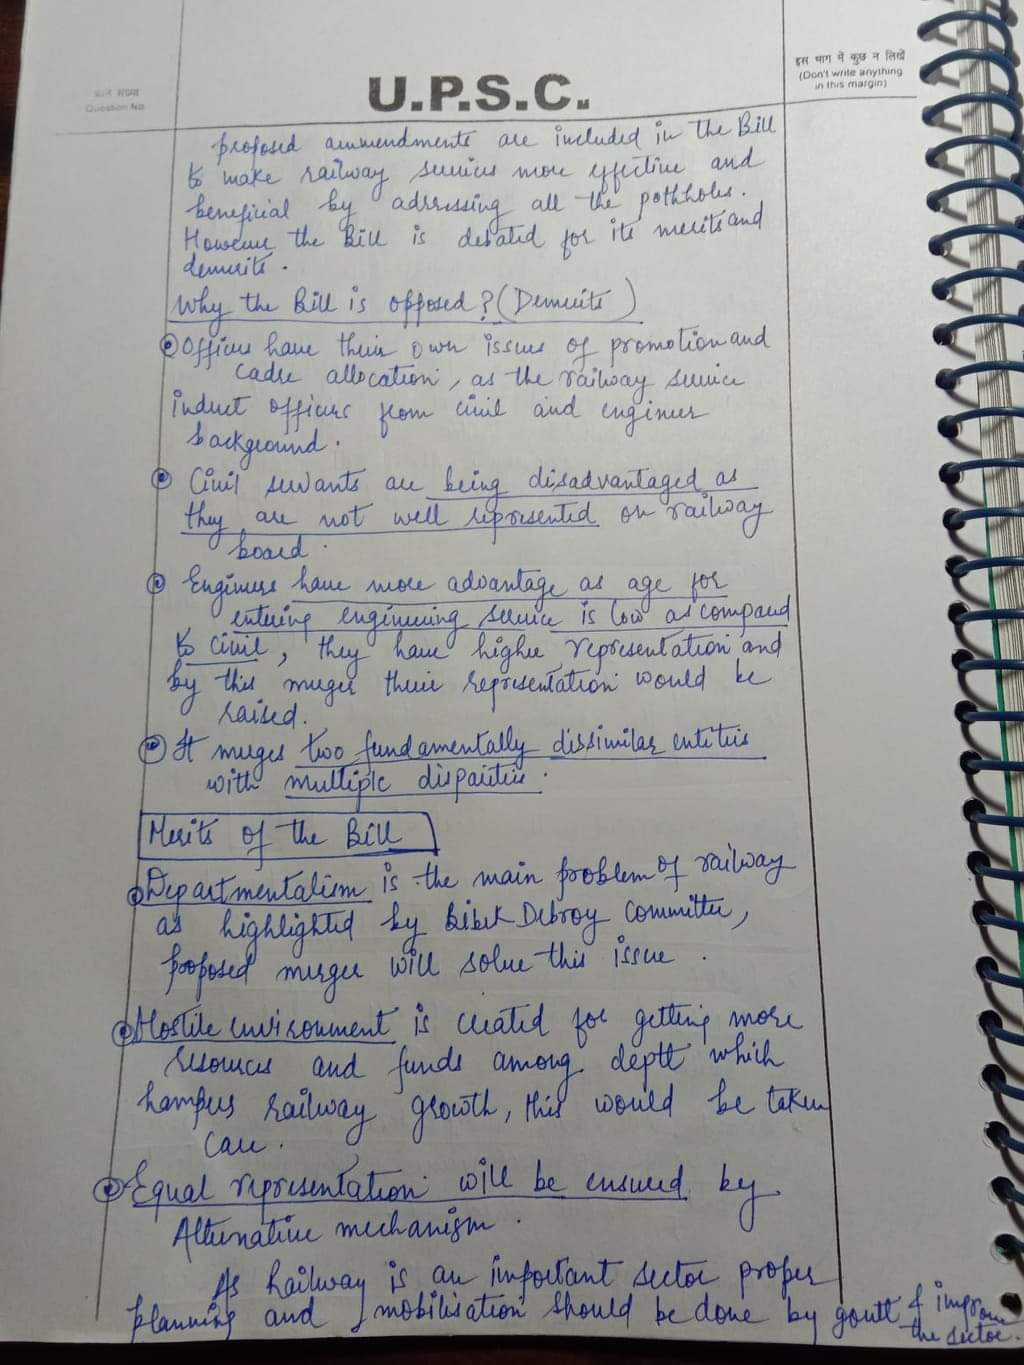 प्रश्न संख्या
Question No.
U.P.S.C.
इस भाग में कुछ न लिखें
(Don't write anything
in this margin)
proposed ammendments are included in the Bill
to make railway services more effective and
beneficial by adrressing all the pothholes.
However the Bill is debated for its merits and
demerits.
Why the Bill is opposed? (Demerits)
Officers have their own issues of promotion and
cadre allocation, as the railway service
induct officers from civil and engineer
background.
Civil servants are being disadvantaged as
they are not well represented on railway
board.
Engineers have more advantage as age for
entering engineering service is low as compared
to civil, they have higher representation and
by this merger their representation would be
raised.
It merges two fundamentally dissimilar entities
with multiple disparities.
Merits of the Bill
Departmentalism is the main problem of railway
as highlighted by Bibek Debroy Committee,
proposed merger will solve this issue.
Hostile environment is created for getting more
resources and funds among deptt which
hampers railway growth, this would be taken
care.
Equal representation will be ensured by
Alternative mechanism.
As Railway is an important sector proper
planning and mobilisation should be done by goutt & improve
the sector.